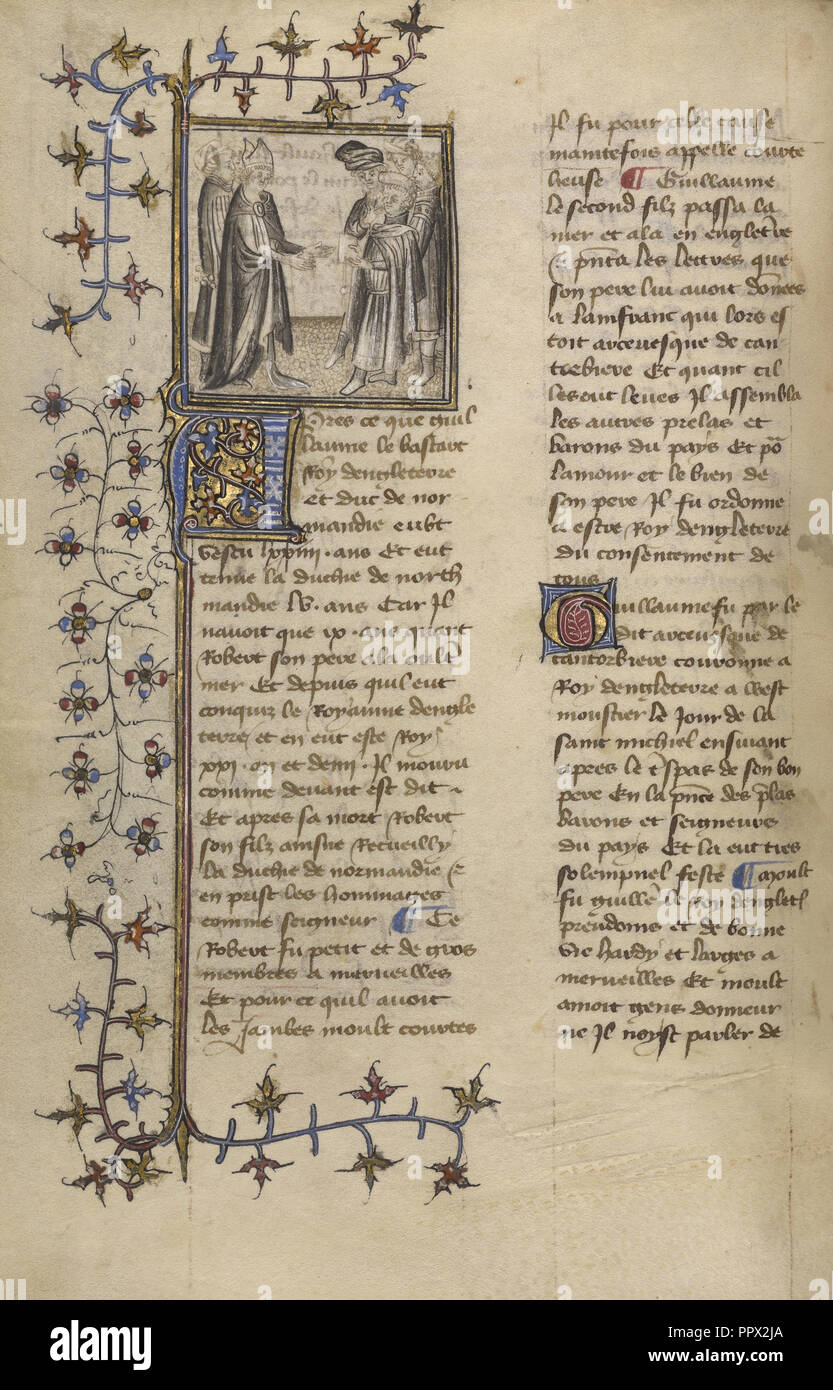 Pres ce que guil
laume le bastart
Roy dengleterre
et duc de nor
mandie eubt
vescu lxxiiii · ans Et eut
tenue la duchie de north
mandie lv · ans Car Il
navoit que ix · ans quant
Robert son pere ala oult
mer Et depuis quil eut
conquiz le Royaume dengle
terre et en eut este Roy
xxi · an et demi · Il mouru
comme devant est dit
Et apres sa mort Robert
son filz ainsne Recueilly
la duchie de normandie
en prist les hommages
comme seigneur ¶ Ce
Robert fu petit et de gros
membres a merveilles
Et pour ce quil avoit
les Jambes moult courtes
Il fu pour celle cause
maintefois appelle courte
heuse ¶ Guillaume
le second filz passa la
mer et ala en engletre
pnta les lettres que
son pere lui avoit donees
a lamfranc qui lors es
toit arcevesque de can
torbiere Et quant cil
les eut leues Il assembla
les autres prelas et
barons du pays Et po
lamour et le bien de
son pere Il fu ordonne
a estre Roy dengleterre
du consentement de
tous
Guillaume fu par le
dit arcevesque de
cantorbiere couronne a
Roy dengleterre a west
moustier le Jour de la
saint michiel ensuiant
apres le tspas de son bon
pere En la pnce des plas
barons et seigneurs
du pays Et la eut tres
solempnel feste ¶ Moult
fu guille le Roy dengletre
preudoms et de bonne
vie hardy et larges a
merveilles Et moult
amoit gens donneur
ne Il noyst parler de
alamy
alamy
Image ID: PPX2JA
www.alamy.com